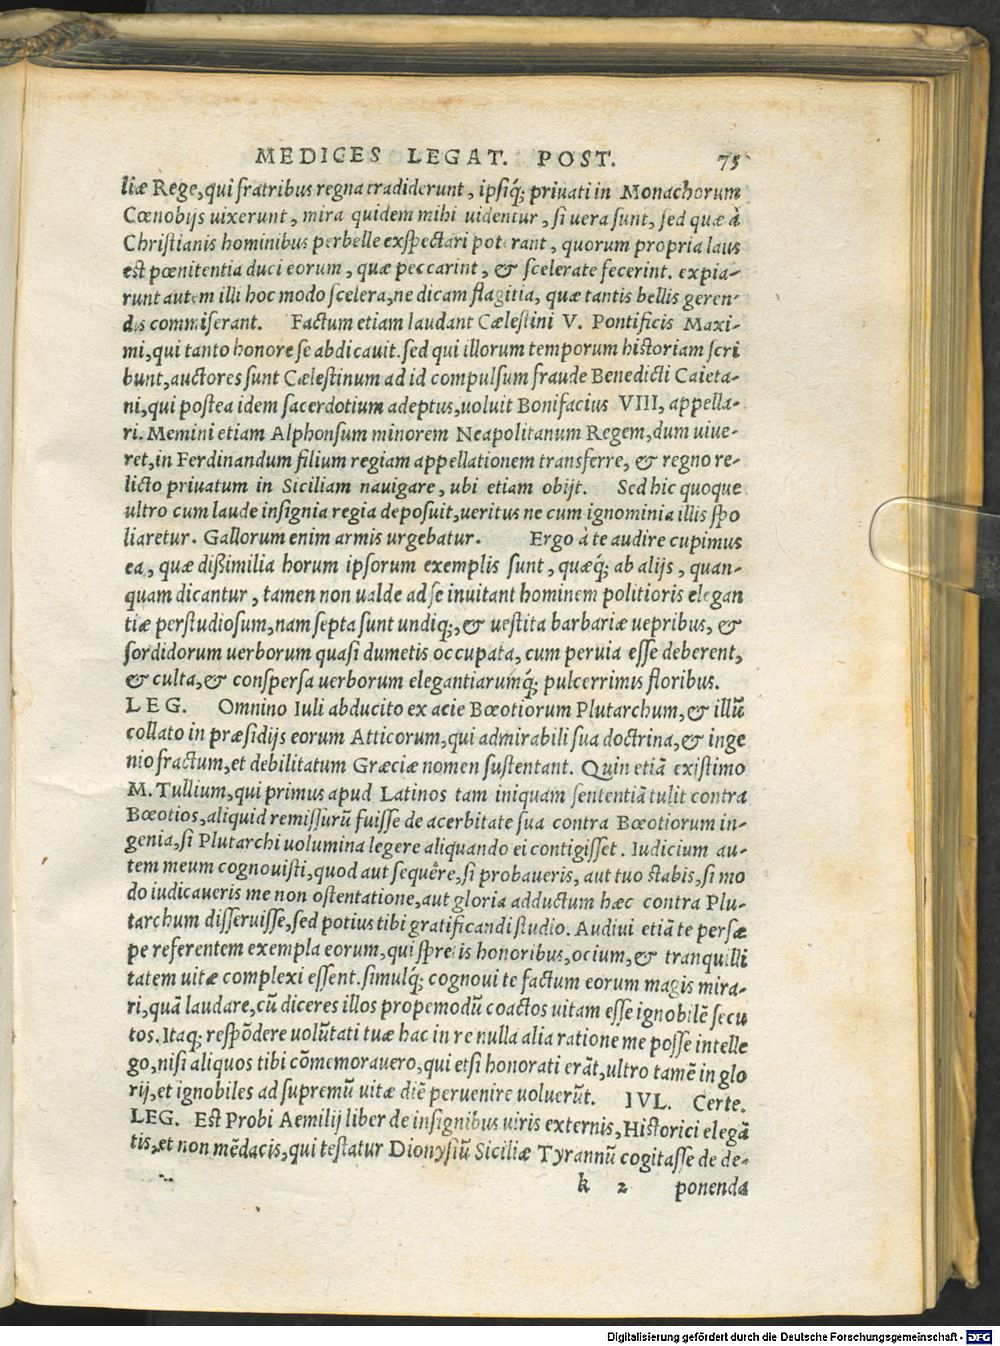 MEDICES LEGAT. POST. 75
liæ Rege, qui fratribus regna tradiderunt, ipsiq́; priuati in Monachorum
Cœnobijs uixerunt, mira quidem mihi uidentur, si uera sunt, sed quæ à
Christianis hominibus perbelle exspectari poterant, quorum propria laus
est pœnitentia duci eorum, quæ peccarint, & scelerate fecerint. expia-
runt autem illi hoc modo scelera, ne dicam flagitia, quæ tantis bellis geren-
dis commiserant. Factum etiam laudant Cælestini V. Pontificis Maxi-
mi, qui tanto honore se abdicauit. sed qui illorum temporum historiam scri
bunt, auctores sunt Cælestinum ad id compulsum fraude Benedicti Caieta-
ni, qui postea idem sacerdotium adeptus, uoluit Bonifacius VIII, appella-
ri. Memini etiam Alphonsum minorem Neapolitanum Regem, dum uiue-
ret, in Ferdinandum filium regiam appellationem transferre, & regno re-
licto priuatum in Siciliam nauigare, ubi etiam obijt. Sed hic quoque
ultro cum laude insignia regia deposuit, ueritus ne cum ignominia illis spo
liaretur. Gallorum enim armis urgebatur. Ergo à te audire cupimus
ea, quæ dißimilia horum ipsorum exemplis sunt, quæq́; ab alijs, quan-
quam dicantur, tamen non ualde ad se inuitant hominem politioris elegan
tiæ perstudiosum, nam septa sunt undiq;, & uestita barbariæ uepribus, &
sordidorum uerborum quasi dumetis occupata, cum peruia esse deberent,
& culta, & conspersa uerborum elegantiarumq́; pulcerrimis floribus.
LEG. Omnino Iuli abducito ex acie Bœotiorum Plutarchum, & illũ
collato in præsidijs eorum Atticorum, qui admirabili sua doctrina, & inge
nio fractum, et debilitatum Græciæ nomen sustentant. Quin etiã existimo
M. Tullium, qui primus apud Latinos tam iniquam sententiã tulit contra
Bœotios, aliquid remissurũ fuisse de acerbitate sua contra Bœotiorum in-
genia, si Plutarchi uolumina legere aliquando ei contigisset. Iudicium au-
tem meum cognouisti, quod aut sequêre, si probaueris, aut tuo stabis, si mo
do iudicaueris me non ostentatione, aut gloria adductum hæc contra Plu-
tarchum disseruisse, sed potius tibi gratificandi studio. Audiui etiã te persæ
pe referentem exempla eorum, qui spretis honoribus, ocium, & tranquilli
tatem uitæ complexi essent. simulq́; cognoui te factum eorum magis mira-
ri, quã laudare, cũ diceres illos propemodũ coactos uitam esse ignobilẽ secu
tos. Itaq; respõdere uolũtati tuæ hac in re nulla alia ratione me posse intelle
go, nisi aliquos tibi cõmemorauero, qui etsi honorati erãt, ultro tamẽ inglo
rij, et ignobiles ad supremũ uitæ diẽ peruenire uoluerũt. IVL. Certe.
LEG. Est Probi Aemilij liber de insignibus uiris externis, Historici elegã
tis, et non mẽdacis, qui testatur Dionysiũ Siciliæ Tyrannũ cogitasse de de-
k 2 ponenda
Digitalisierung gefördert durch die Deutsche Forschungsgemeinschaft - DFG